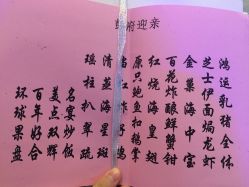 府迎亲
鸿运乳猪全体
芝士伊面焗龙虾
金巢海中宝
百花炸酿鲜蟹钳
红烧海皇翅
原只鲍鱼扣鹅掌
清蒸海星斑
瑶柱扒翠蔬
名宴炒饭
美点双辉
百年好合
环球果盘